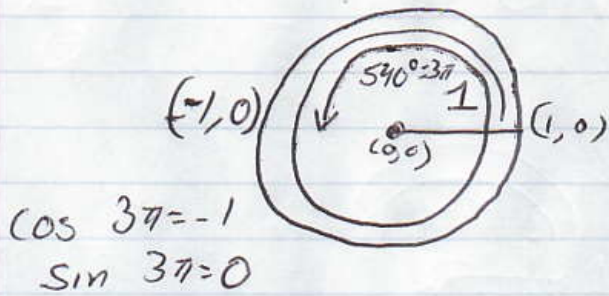 540°=3π
1
(-1,0)
(1,0)
(0,0)
cos 3π=-1
sin 3π=0